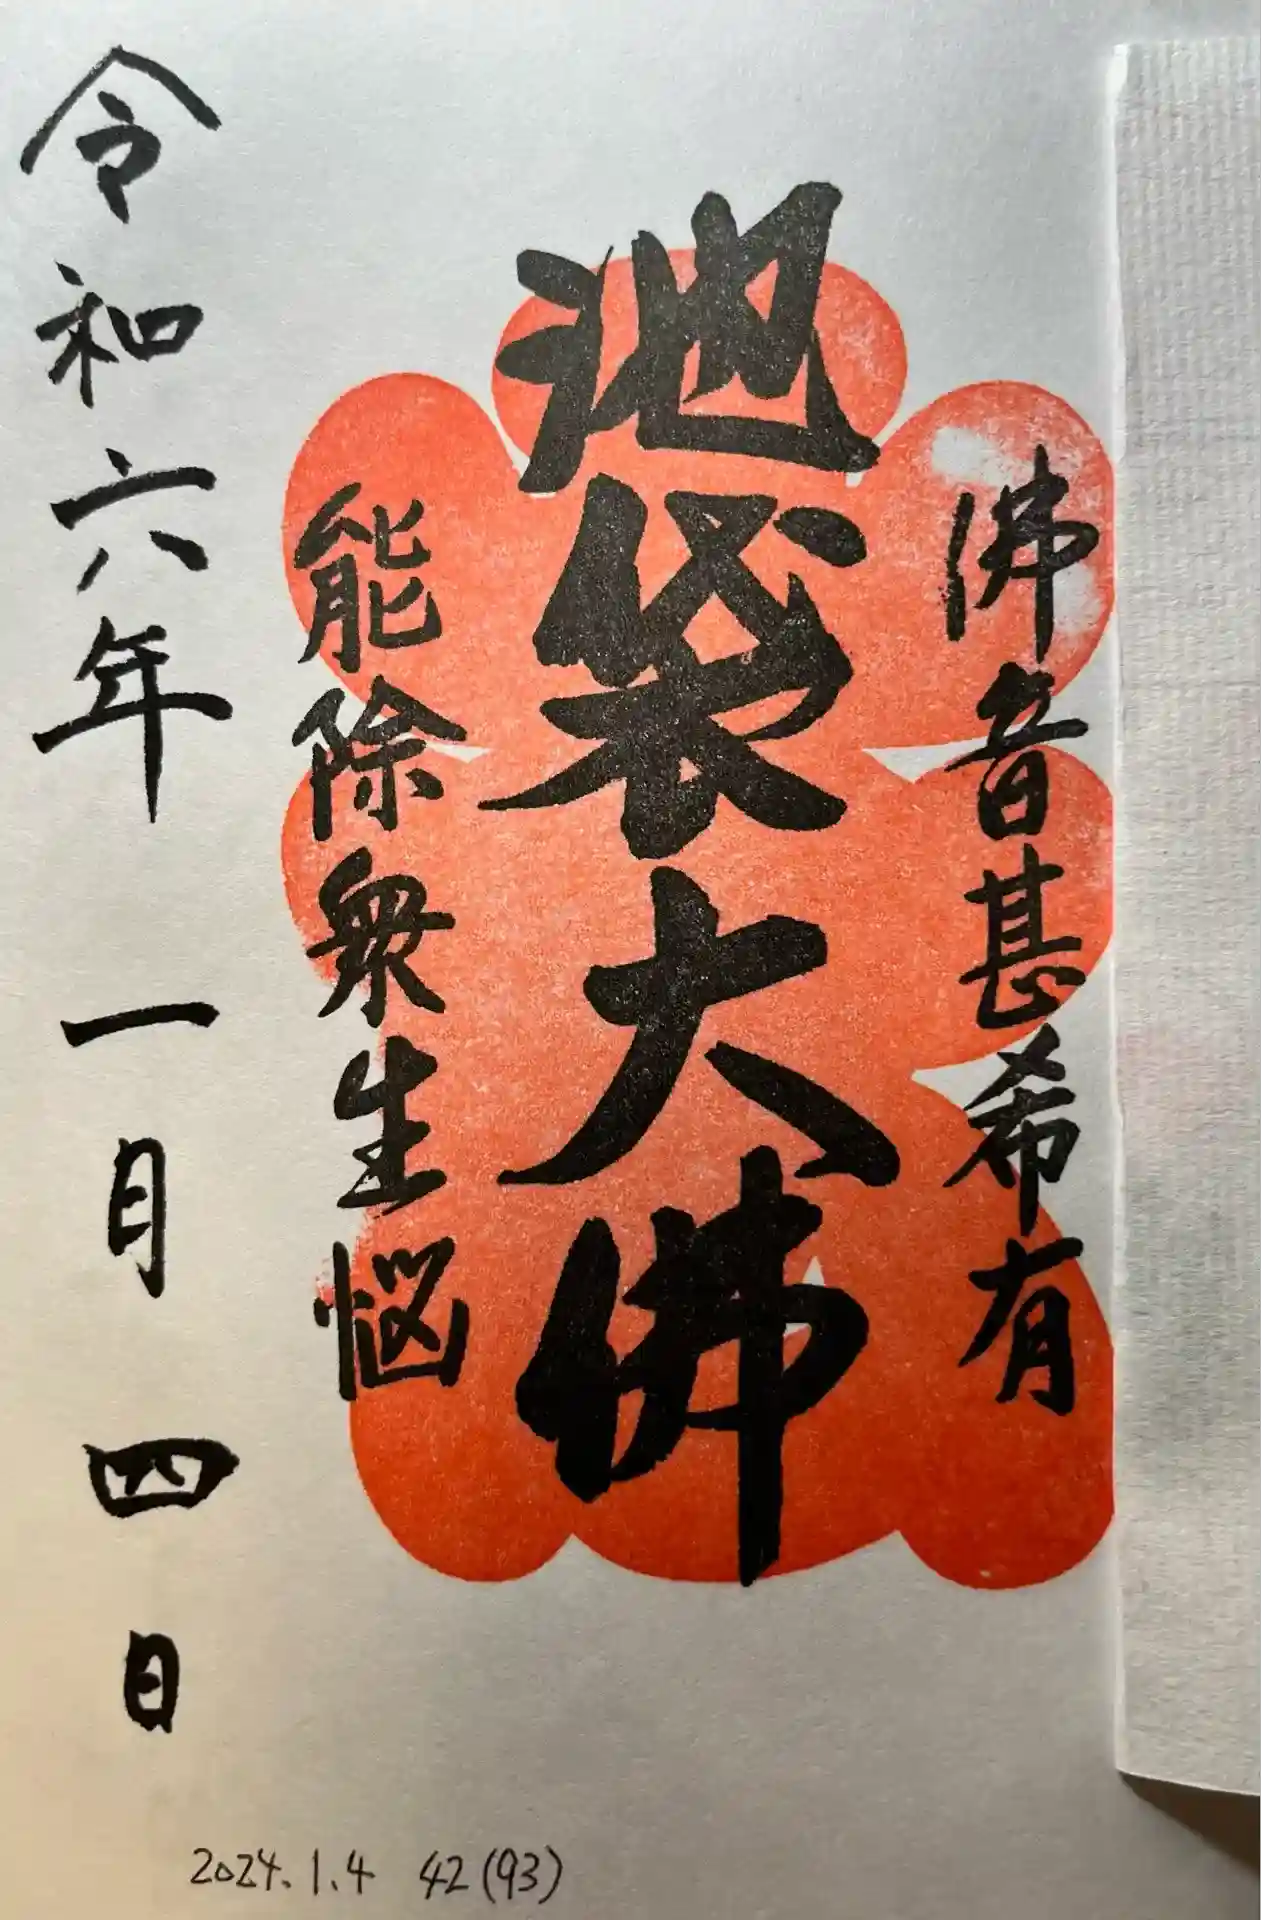 佛音甚希有
池袋大佛
能除衆生悩
令和六年一月四日
2024.1.4 42(93)